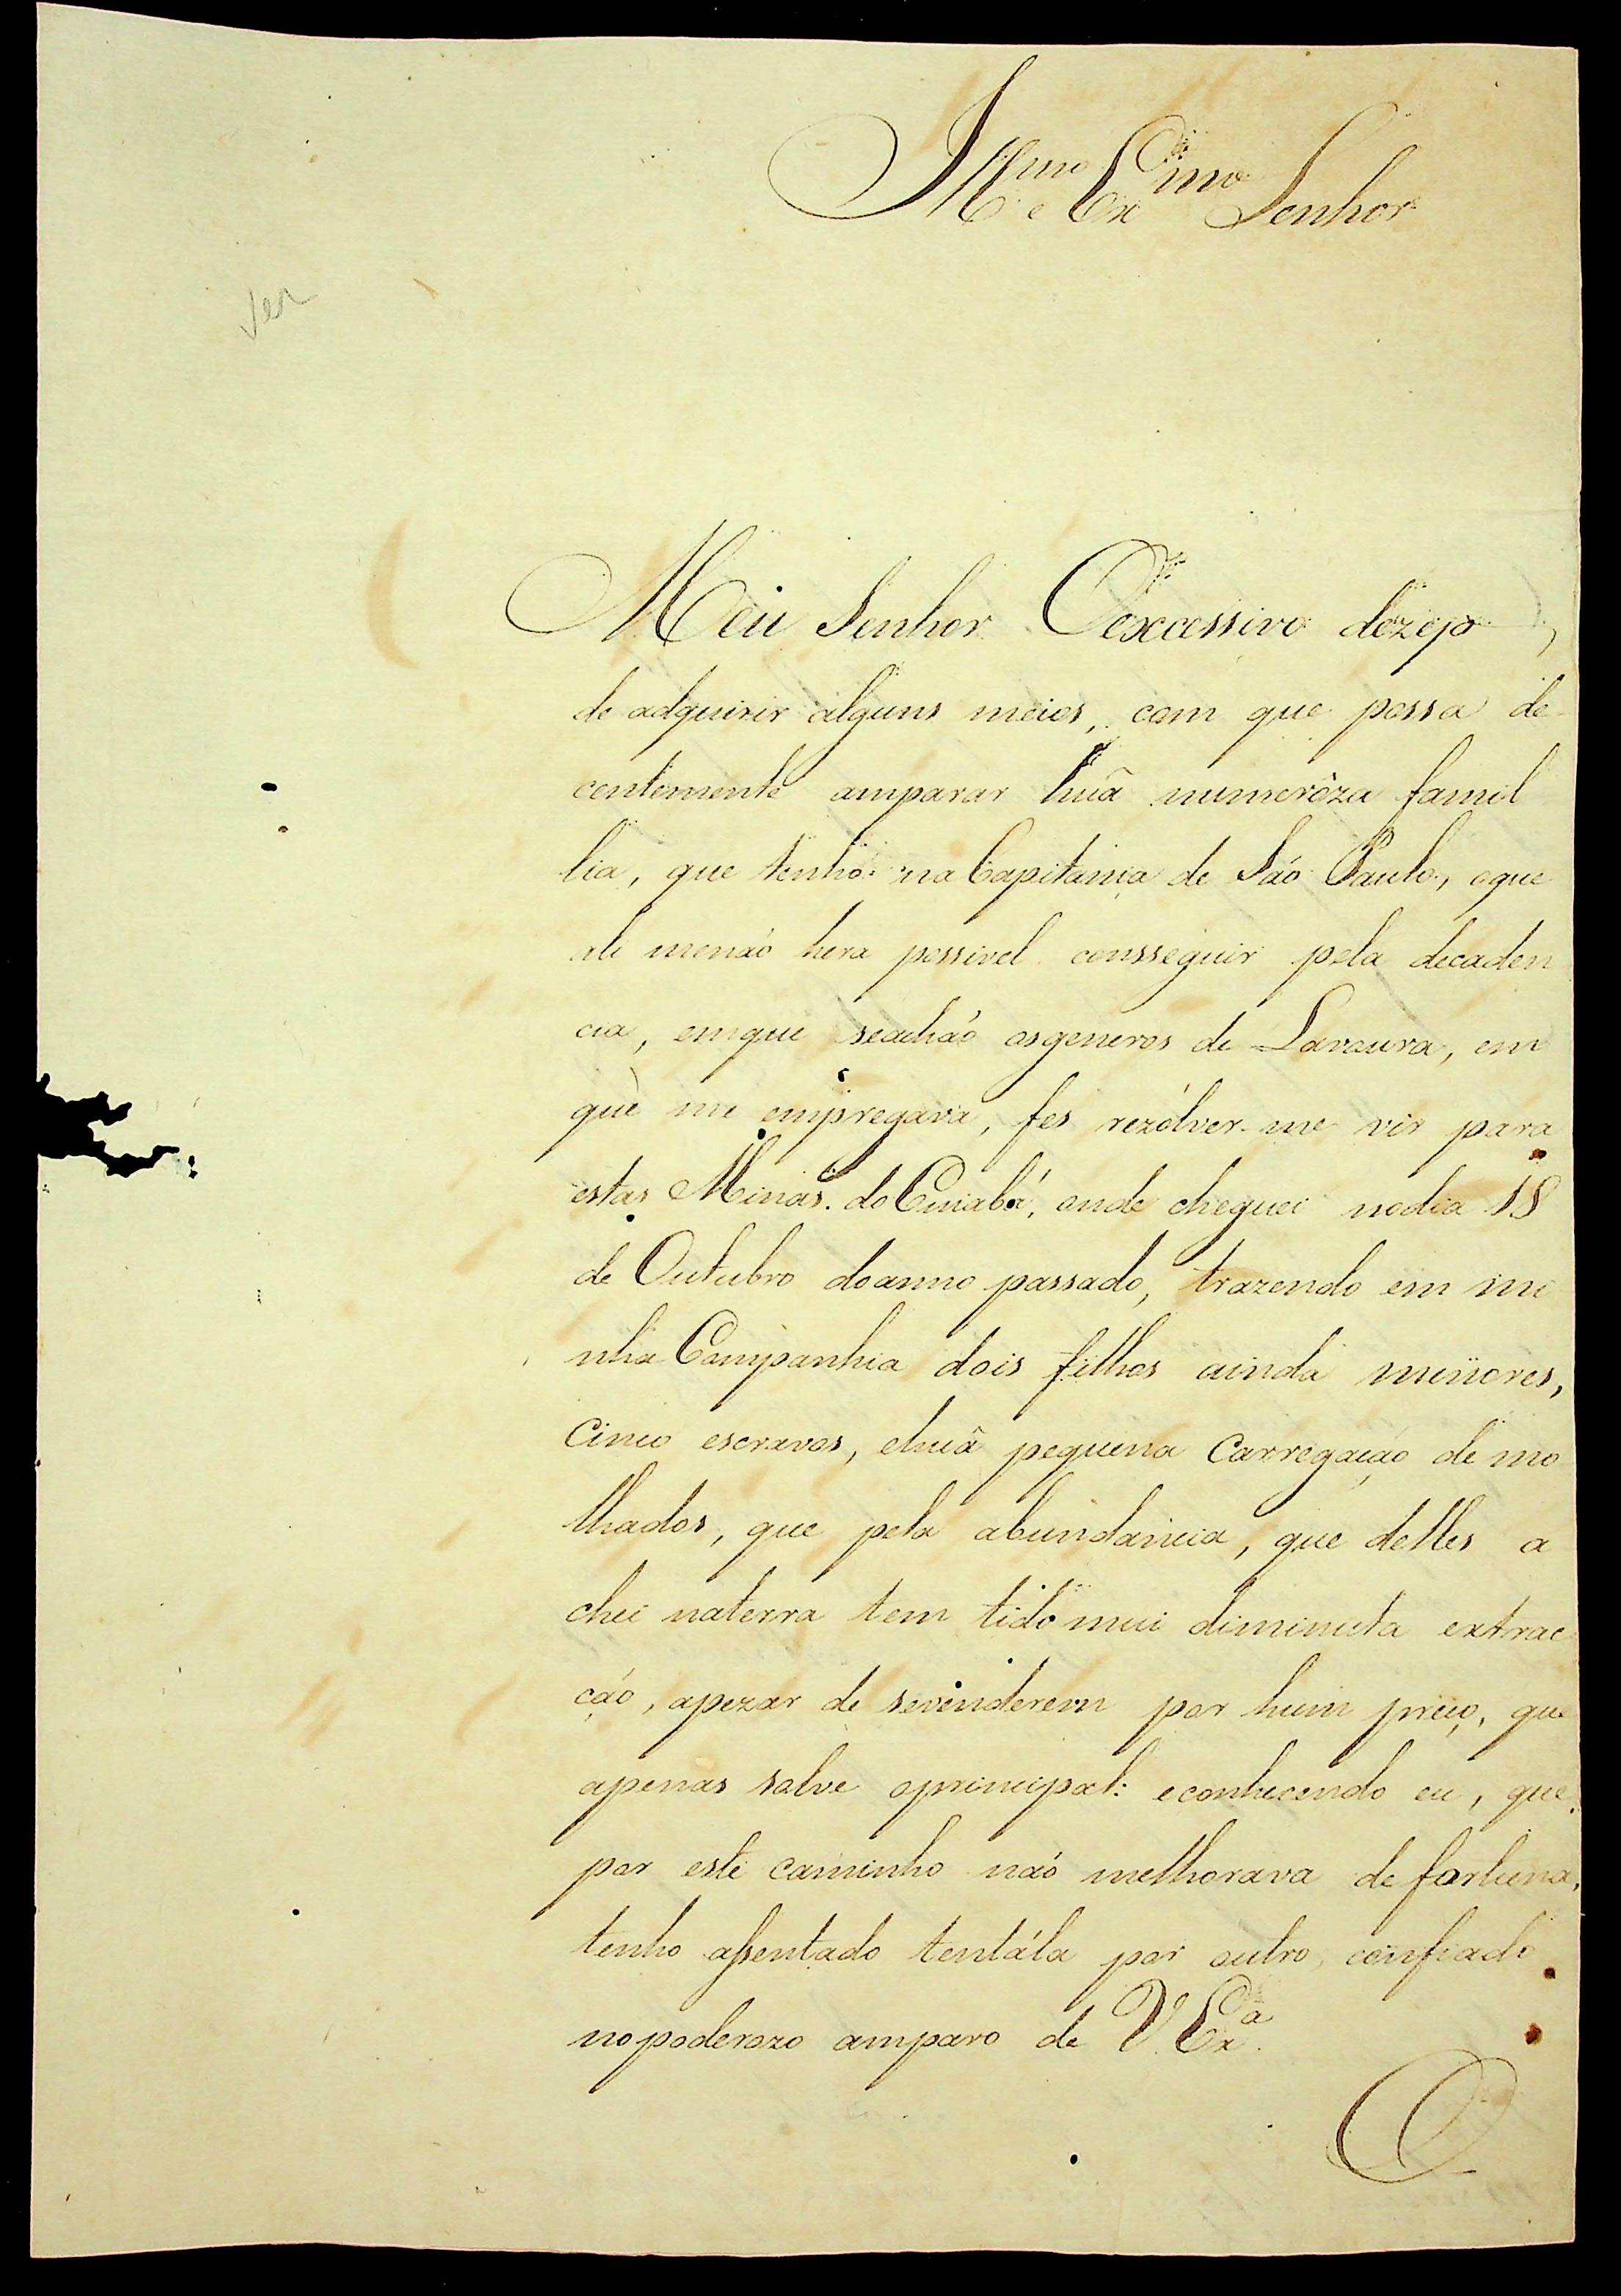 Illmo e Exmo Senhor
Ver
Meu Senhor O excessivo dezejo,
de adquirir alguns meios, com que possa de
centemente amparar huã numeróza famil
lia, que tenho na Capitania de Sáo Paulo, oque
ali menáo hera possivel consseguir pela decaden
cia, emque seacháo osgeneros de Lavoura, em
que me empregava, fes rezólver-me vir para
estas Minas do Cuiabá, onde cheguei nodia 18
de Outubro doanno passado, trazendo em mi
nha Companhia dois filhos ainda menores,
cinco escravos, ehuã pequena Carregaçáo de mo
lhados, que pela abundancia, que delles a
chei naterra tem tido mui diminuta extrac
çáo, apezar de sevenderem por hum preço, que
apenas salve oprincipal: econhecendo eu, que
por este caminho náo melhorava de fortuna,
tenho assentado tentála por outro, confiado
nopoderozo amparo de V. Exa.
O